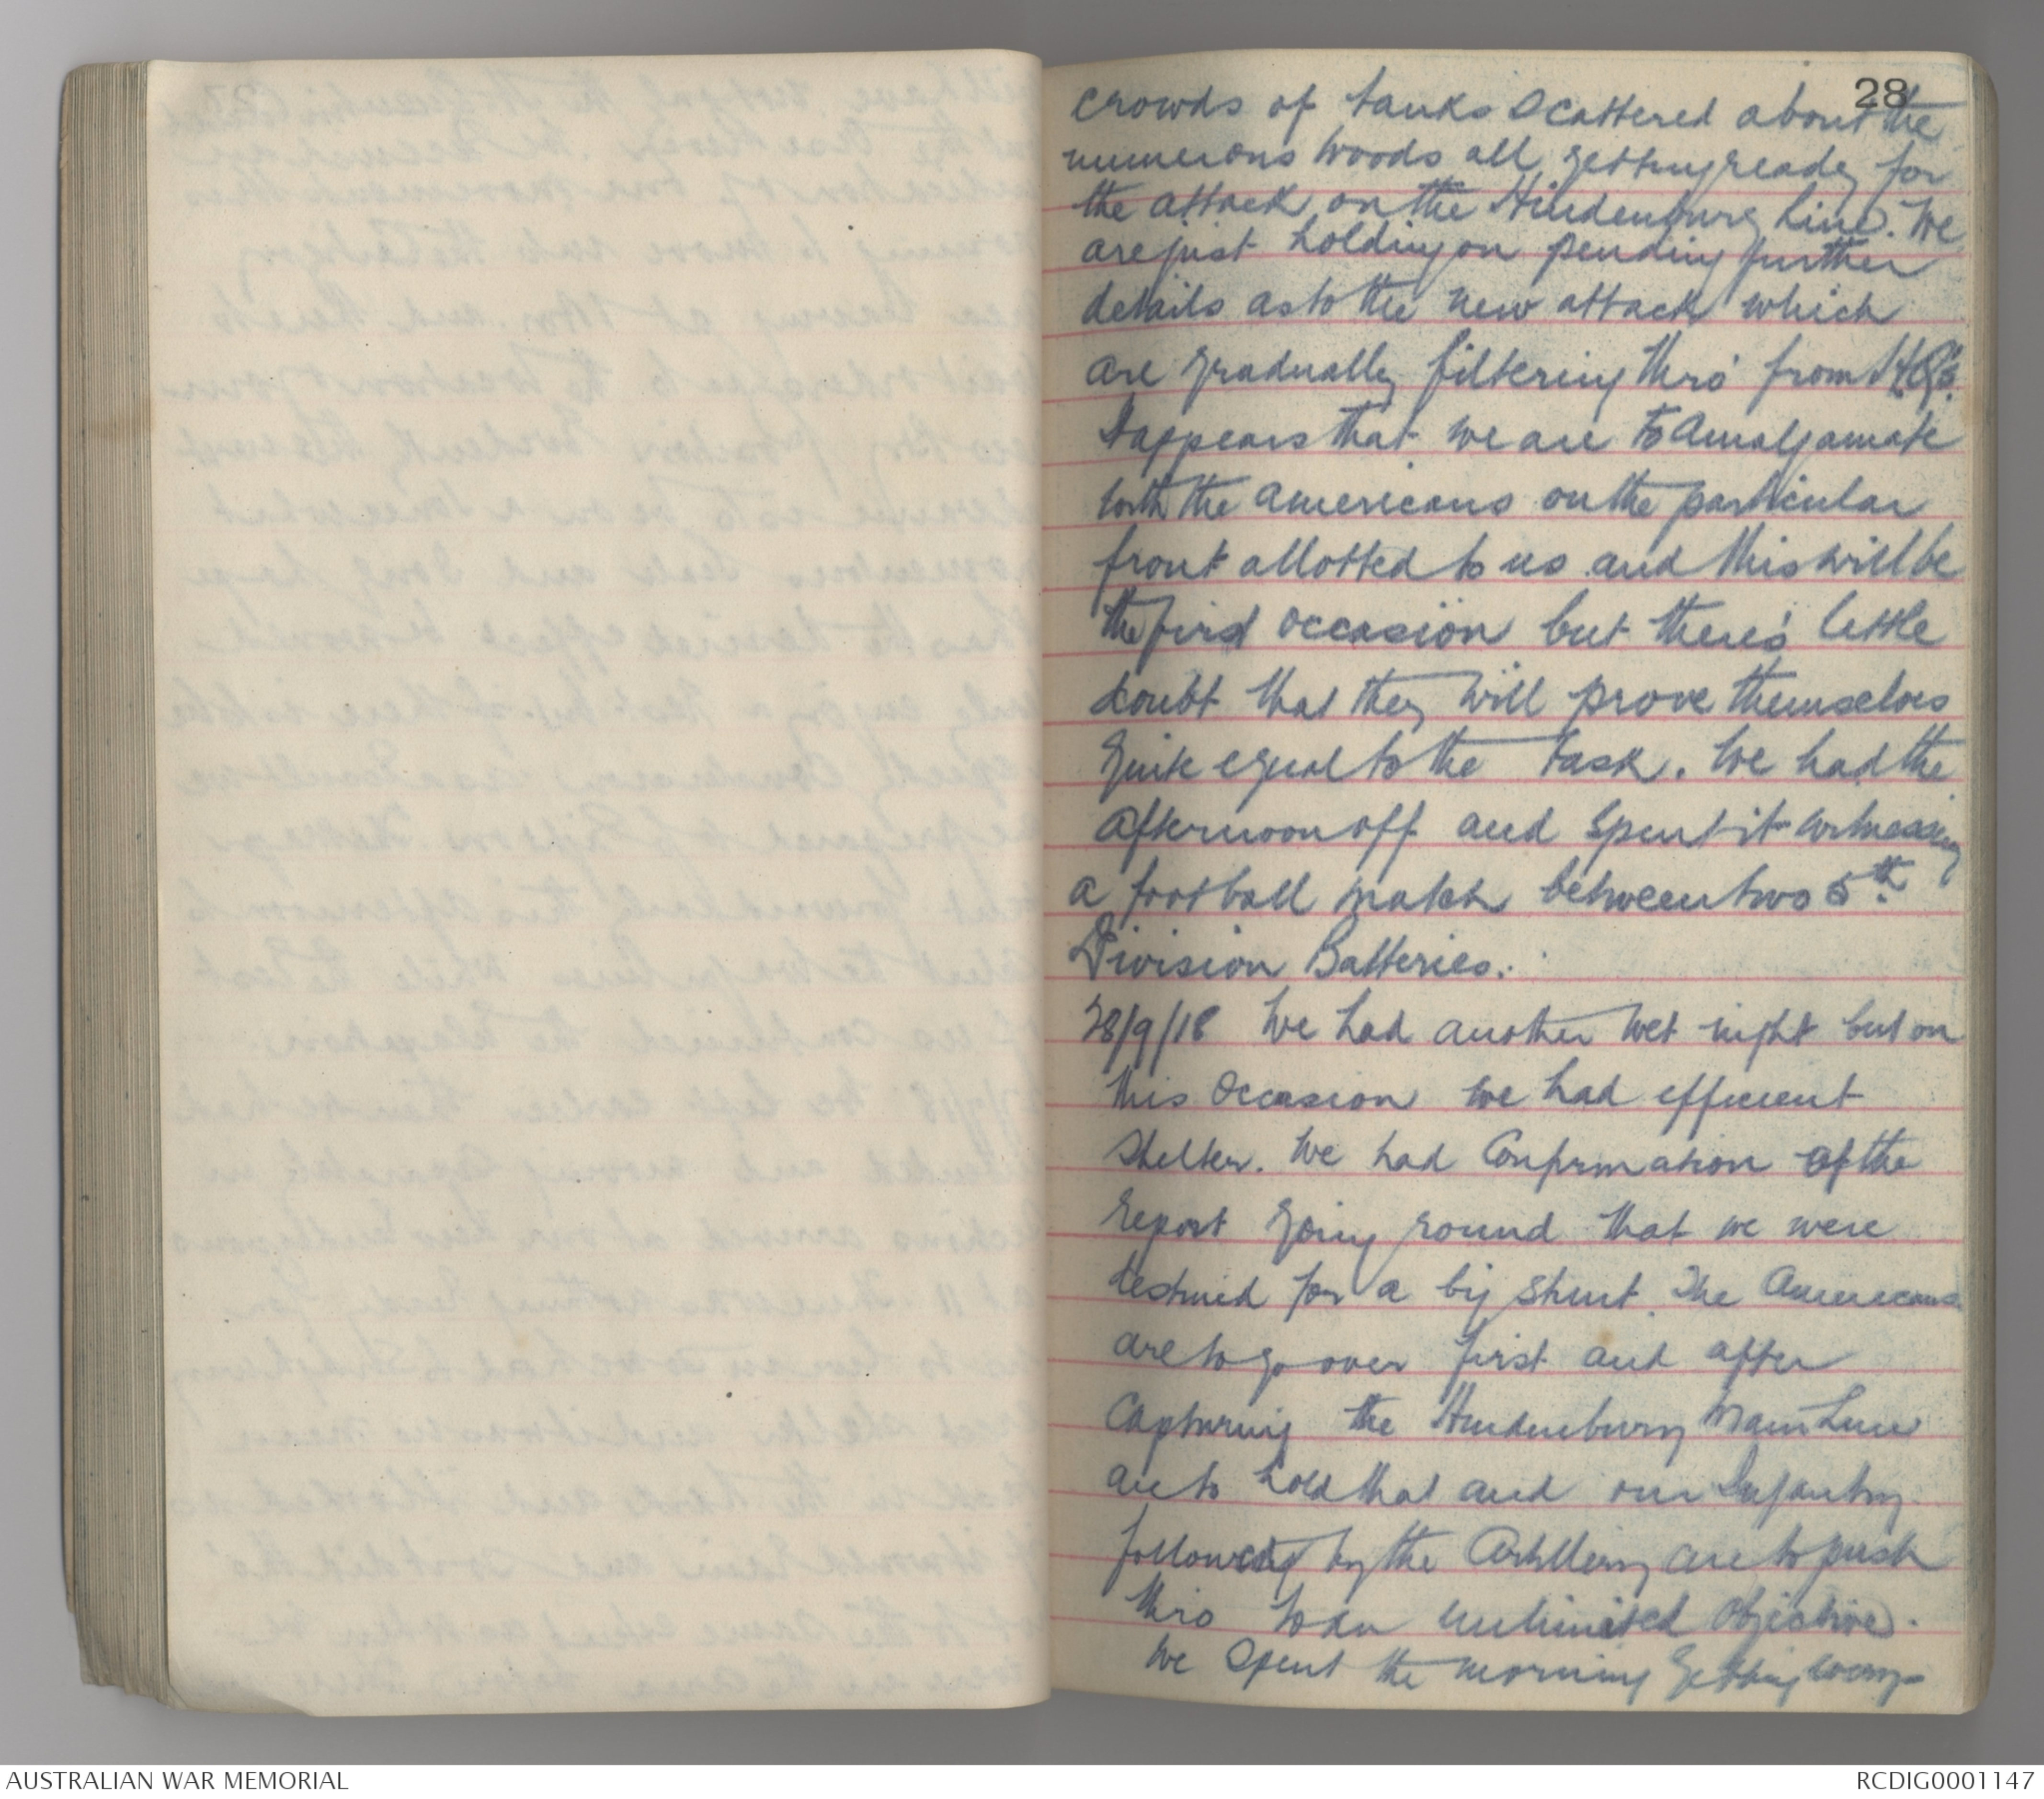 28
crowds of tanks scattered about the
numerous woods all getting ready for
the attack on the Hindenburg Line. We
are just holding on pending further
details as to the new attack which
are gradually filtering thro' from HQrs.
It appears that we are to amalgamate
with the Americans on the particular
front allotted to us and this will be
the first occasion but there's little
doubt that they will prove themselves
quite equal to the task. We had the
afternoon off and spent it witnessing
a football match between two 5th
Division Batteries.
28/9/18 We had another wet night but on
this occasion we had efficient
shelter. We had confirmation of the
report going round that we were
destined for a big stunt. The Americans
are to go over first and after
capturing the Hindenburg Main Line
are to hold that and our Infantry
followed by the Artillery are to push
thro to an unlimited objective.
We spent the morning getting
AUSTRALIAN WAR MEMORIAL
RCDIG0001147